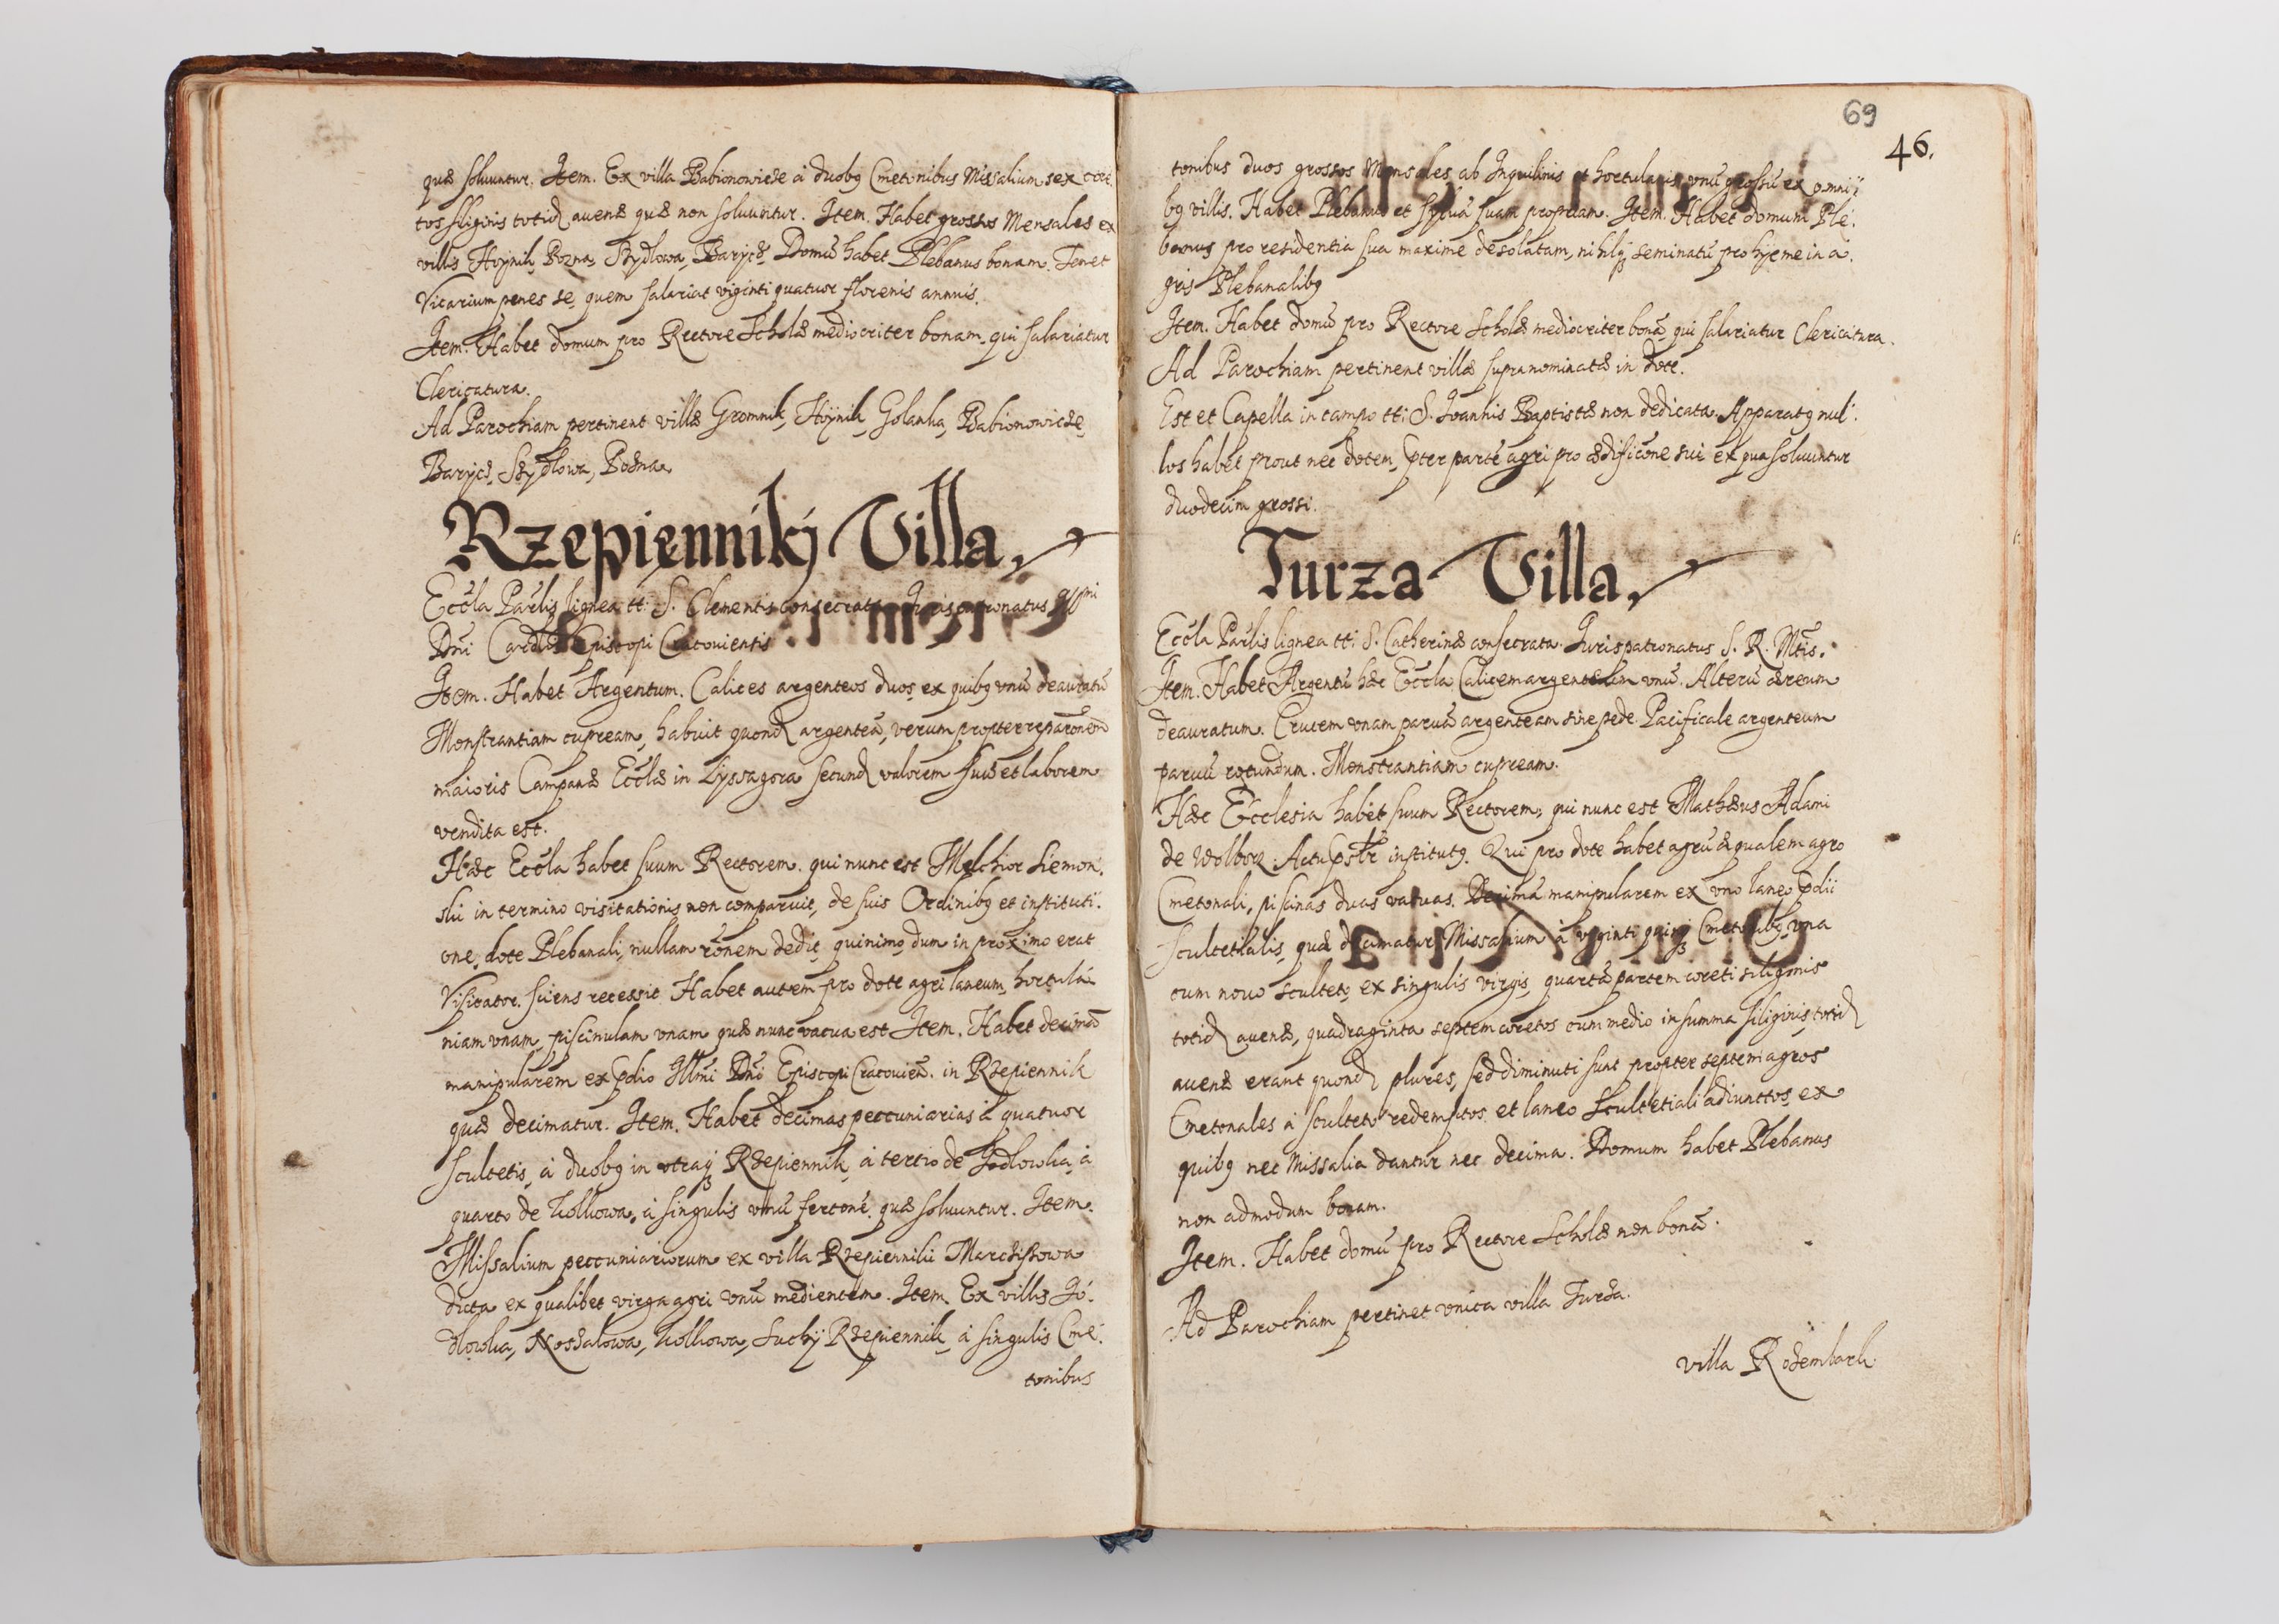 quæ soluuntur. Item. Ex villa Babionowicze a duobg Cmetonibus Missalium sex core.
tos siliginis totid auenæ quæ non soluuntur. Item. Habet grossos Mensales ex
villis Hoÿnik, Pozna, Szydlowa, Baryce, Domū habet Plebanus bonam. Tenet
Vicarium penes se, quem salariat viginti quatuor florenis annuis.
Item. Habet domum pro Rectore Scholæ mediocriter bonam, qui salariatur
Clericatura.
Ad Parochiam pertinent villæ Gromnik, Hoÿnik, Golanka, Babionowicze,
Baryce, Szydlowa, Pozna.
Rzepięnnikj Villa.
Eccla Parlis lignea tt: S. Clementis consecrata. Juris patronatus Illmi
Dni Cardlis Episcopi Cracouientis
Item. Habet Argentum. Calices argenteos duos, ex quibg vnū deauratū
Monstrantiam cupream, habuit quond argenteā, verum propter reparonem
maioris Campanæ Ecclæ in Lyssagora secund valorem suū et laborem
vendita est.
Hæc Eccla habet suum Rectorem. qui nunc est Melchior Siemon.
ski in termino visitationis non comparuit, de suis Ordinibg et instituti.
one, dote Plebanali, nullam ronem dedit, quinimo, dum in proximo erat
Visitator. sciens recessit. Habet autem pro dote agri laneum, hortula.
niam vnam, piscinulam vnam quæ nunc vacua est. Item. Habet decimā
manipularem ex pdio Illmi Dni Episcopi Cracouien. in Rzepiennik
quæ decimatur. Item. Habet decimas peccuniarias a quatuor
scultetis, a duobg in vtraqз Rzepiennik, a tertio de Jodlowka, a
quarto de Kolkowa, a singulis vnū fertonē. quæ soluuntur. Item.
Missalium peccuniariorum ex villa Rzepiennikii Marciszowa
dicta ex qualibet virga agri vnū medientem. Item. Ex villis Jo.
dlowka, Roszalowa, Kolkowa, Suchÿ Rzepiennik, a singulis Cme.
tonibus
69
46.
tonibus duos grossos Mensales, ab Inquilinis et hortulanis vnū grossū ex omni
bg villis. Habet Plebanus et syluā suam propriam. Item. Habet domum Ple.
banus pro residentia sua maxime desolatam, nihilqз seminatū pro hyeme in a.
gris Plebanalibg
Item. Habet domū pro Rectore Scholæ mediocriter bonā, qui salariatur Clericatura.
Ad Parochiam pertinent villæ supranominatæ in dote.
Est et Capella in campo tt: S. Joannis Baptistæ non dedicata. Apparatg nul.
los habet prout nec dotem, pter partē agri pro ædificone sui ex qua soluuntur
duodecim grossi.
Turza Villa.
Eccla Parlis lignea tt: S. Catherinæ consecrata. Juris patronatus S. R. Mtis.
Item. Habet Argentū hæc Eccla Calicem argenteum vnū. Alterū æreum
deauratum. Crucem vnam paruā argenteam sine pede. Pacificale argenteum
paruū rotundum. Monstrantiam cupream.
Hæc Ecclesia habet suum Rectorem, qui nunc est Mathæus Adami
de Wolborz. Actu psbr institutg. Qui pro dote habet agrū æqualem agro
Cmetonali, piscinas duas vacuas. Decimā manipularem ex vno laneo pdii
scultetialis, quæ decimatur Missalium a viginti quinqз Cmetonibg, vna
cum nouo sculteto, ex singulis virgis, quartā partem coreti siliginis
totid auenæ, quadraginta septem coretos cum medio in summa siliginis, totid
auenæ erant quond plures, sed diminuti sunt propter septem agros
Cmetonales a sculteto redemptos et laneo Scultetiali adiunctos, ex
quibg nec Missalia dantur nec decima. Domum habet Plebanus
non admodum bonam.
Item. Habet domū pro Rectore Scholæ non bonā.
Ad Parochiam pertinet vnica villa Turza.
villa Rozembark